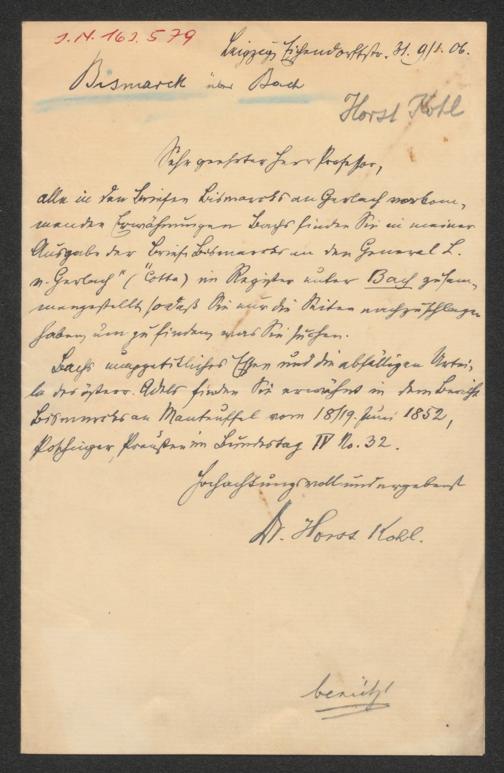 J.N. 163.579
Leipzig, Eichendorffstr. 31. 9/1. 06.
Bismarck über Bach
Horst Kohl
Sehr geehrter Herr Professor,
alle in den Briefen Bismarcks an Gerlach vorkom-
menden Erwähnungen Bachs finden Sie in meiner
Ausgabe der "Briefe Bismarcks an den General L.
v. Gerlach" (Cotta) im Register unter Bach zusam-
mengestellt, sodaß Sie nur die Seiten nachzuschlagen
haben, um zu finden, was Sie suchen.
Bachs unappetitliches Essen und die abfälligen Urtei-
le des österr. Adels finden Sie erwähnt in dem Bericht
Bismarcks an Manteuffel vom 18/19. Juni 1852,
Poschinger, Preußen im Bundestag IV No. 32.
Hochachtungsvoll und ergebenst
Dr. Horst Kohl.
benützt